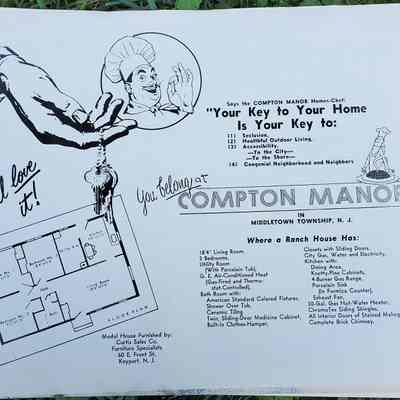 Says the COMPTON MANOR Homes-Chef:
"Your Key to Your Home
Is Your Key to:
(1) Seclusion,
(2) Healthful Outdoor Living,
(3) Accessibility,
—To the City—
—To the Shore—
(4) Congenial Neighborhood and Neighbors
love
it!
You belong at
COMPTON MANOR
IN
MIDDLETOWN TOWNSHIP, N. J.
Where a Ranch House Has:
18'6" Living Room
3 Bedrooms,
Utility Room
(With Porcelain Tub),
G. E. Air-Conditioned Heat
(Gas-Fired and Thermo-
stat-Controlled),
Bath Room with:
American Standard Colored Fixtures,
Shower Over Tub,
Ceramic Tiling
Twin, Sliding-Door Medicine Cabinet,
Built-In Clothes-Hamper,
Closets with Sliding Doors,
City Gas, Water and Electricity,
Kitchen with:
Dining Area,
Knotty-Pine Cabinets,
4-Burner Gas Range,
Porcelain Sink
(in Formica Counter),
Exhaust Fan,
30-Gal. Gas Hot-Water Heater,
Chromatex Siding Shingles,
All Interior Doors of Stained Mahog
Complete Brick Chimney,
FLOOR PLAN
Model House Furnished by:
Curtis Sales Co.
Furniture Specialists
60 E. Front St.
Keyport, N. J.